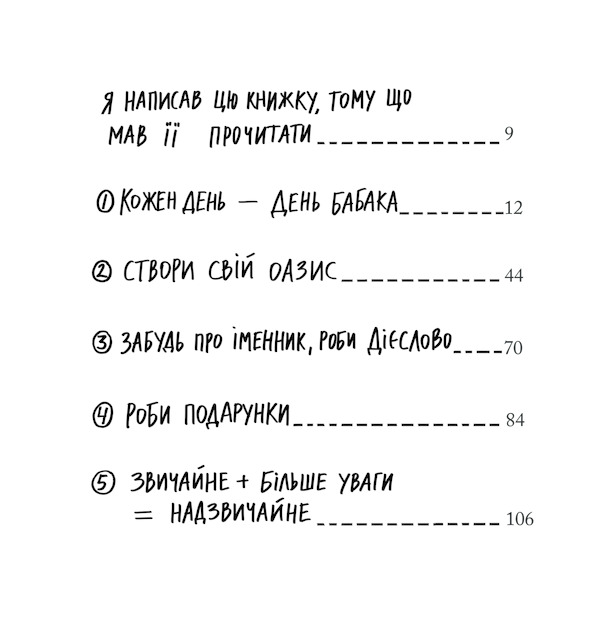 Я НАПИСАВ ЦЮ КНИЖКУ, ТОМУ ЩО
МАВ ЇЇ ПРОЧИТАТИ 9
① КОЖЕН ДЕНЬ — ДЕНЬ БАБАКА 12
② СТВОРИ СВІЙ ОАЗИС 44
③ ЗАБУДЬ ПРО ІМЕННИК, РОБИ ДІЄСЛОВО 70
④ РОБИ ПОДАРУНКИ 84
⑤ ЗВИЧАЙНЕ + БІЛЬШЕ УВАГИ
= НАДЗВИЧАЙНЕ 106